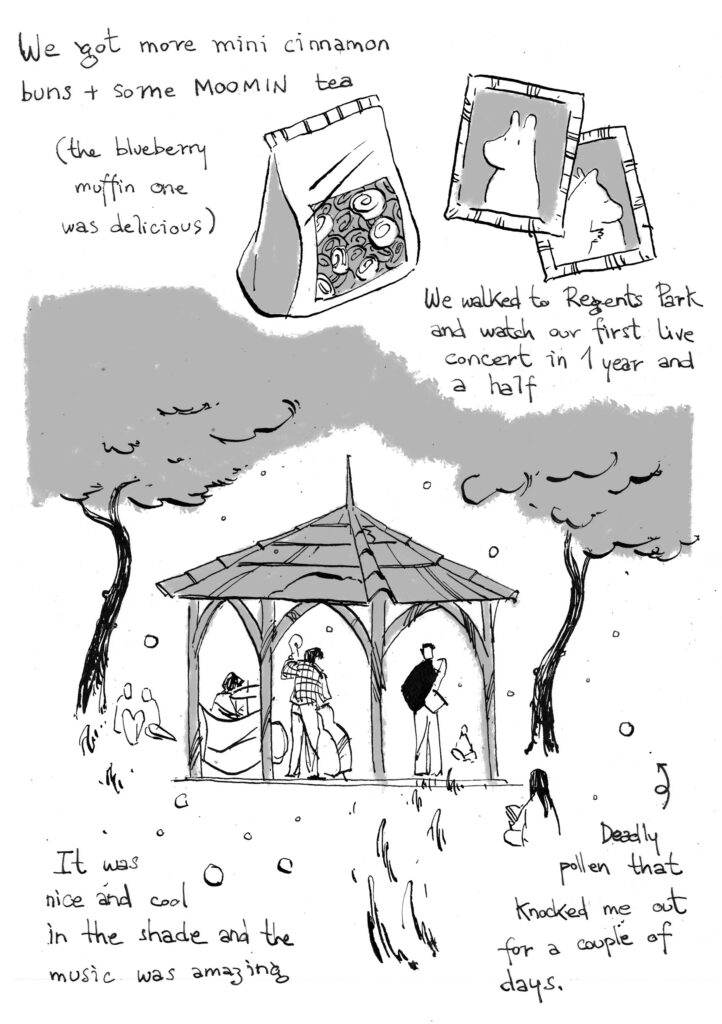 We got more mini cinnamon
buns + some MOOMIN tea
(the blueberry
muffin one
was delicious)
We walked to Regents Park
and watch our first live
concert in 1 year and
a half
It was
nice and cool
in the shade and the
music was amazing
Deadly
pollen that
knocked me out
for a couple of
days.